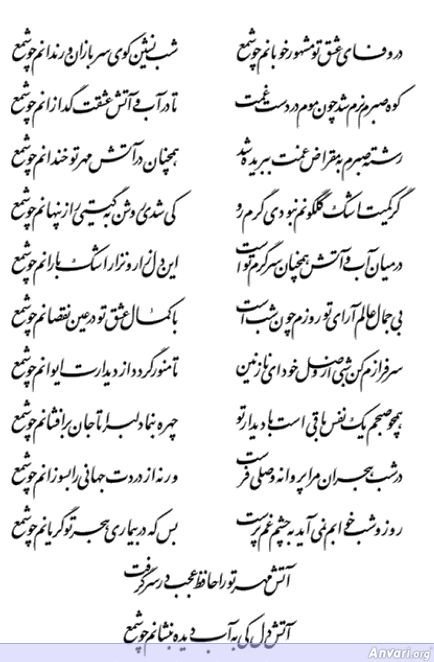 در وفای عشق تو مشهور خوبانم چو شمع شب نشین کوی سربازان و رندانم چو شمع
کوه صبرم نرم شد چون موم در دست غمت تا در آب و آتش عشقت گدازانم چو شمع
رشته صبرم به مقراض غمت ببریده شد همچنان در آتش مهر تو خندانم چو شمع
گر کمیت اشک گلگونم نبودی گرم رو کی شدی روشن به گیتی راز پنهانم چو شمع
در میان آب و آتش همچنان سرگرم تو است این دل زار و نزار اشک بارانم چو شمع
بی جمال عالم آرای تو روزم چون شب است با کمال عشق تو در عین نقصانم چو شمع
سرفرازم کن شبی از وصل خود ای نازنین تا منور گردد از دیدارت ایوانم چو شمع
همچو صبحم یک نفس باقی است با دیدار تو چهره بنما دلبرا تا جان برافشانم چو شمع
در شب هجران مرا پروانه وصلی فرست ور نه از دردت جهانی را بسوزانم چو شمع
روز و شب خوابم نمی آید به چشم غم پرست بس که در بیماری هجر تو گریانم چو شمع
آتش مهر تو را حافظ عجب در سر گرفت
آتش دل کی به آب دیده بنشانم چو شمع
Anvari.org